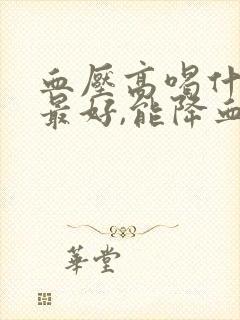 血壓高喝什
最好,能降血
華堂